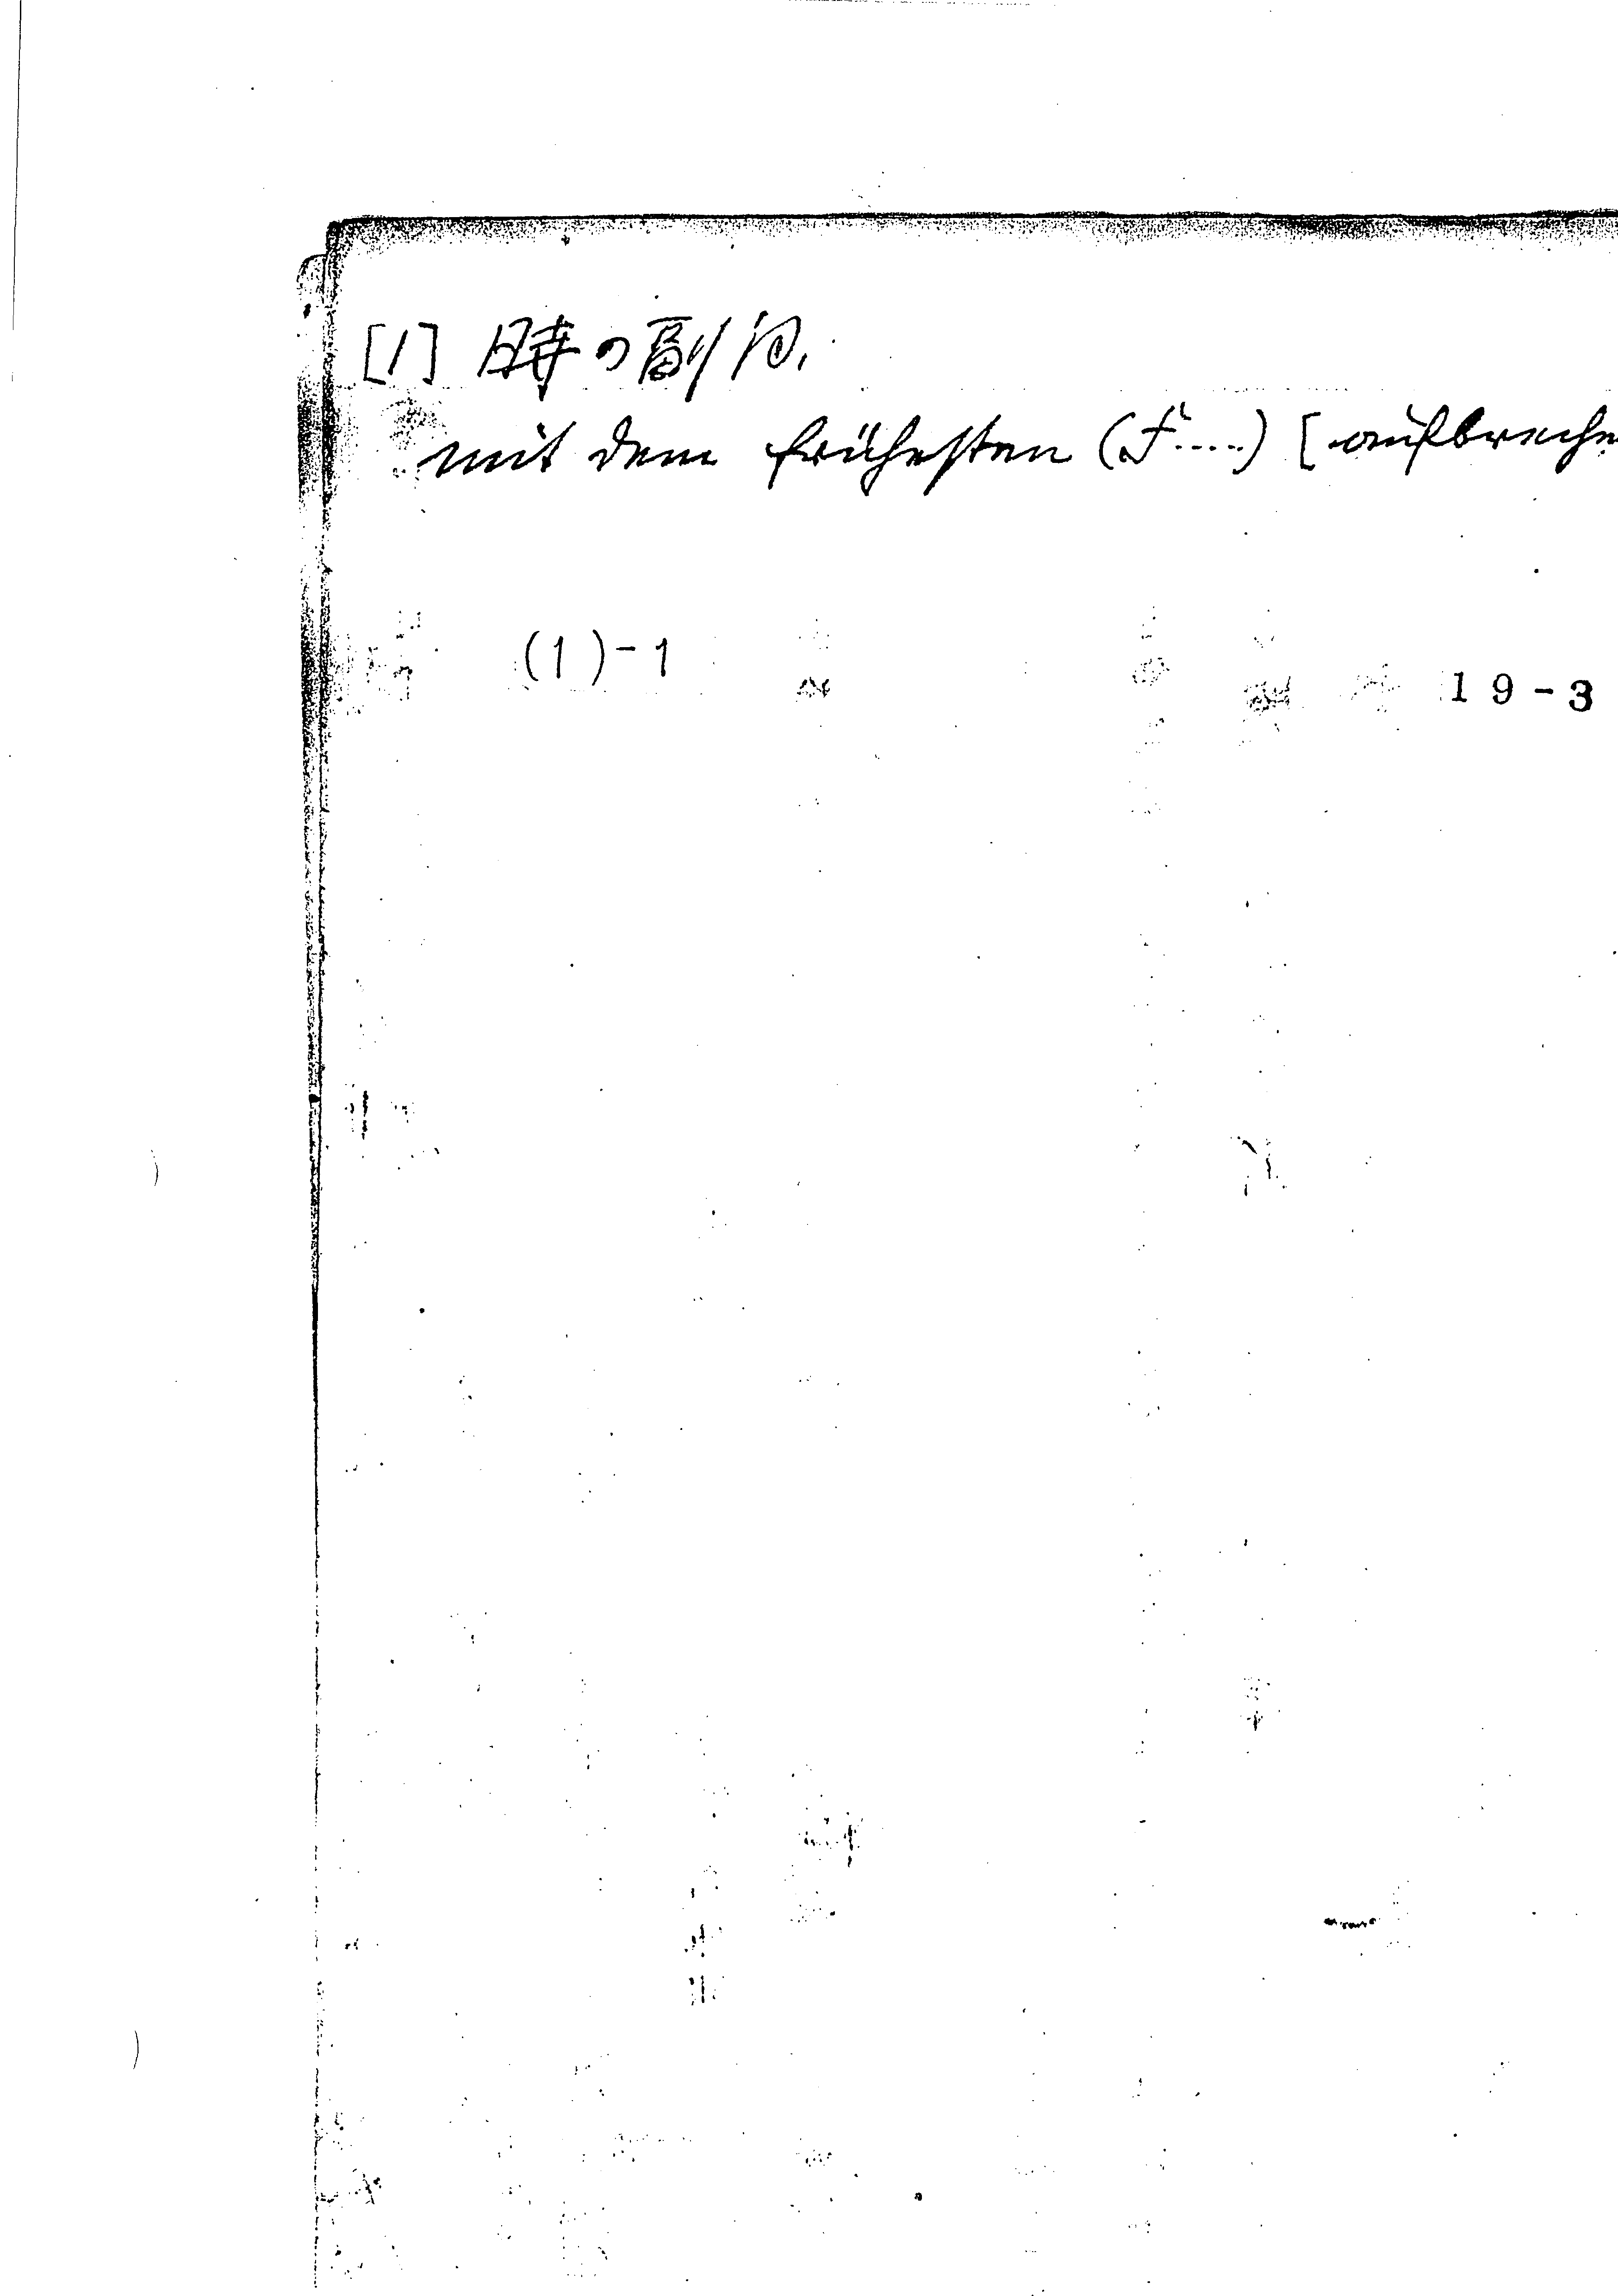 [1] 時の副詞.
mit dem frühesten (F....) [aufbreche
(1)-1
19-3